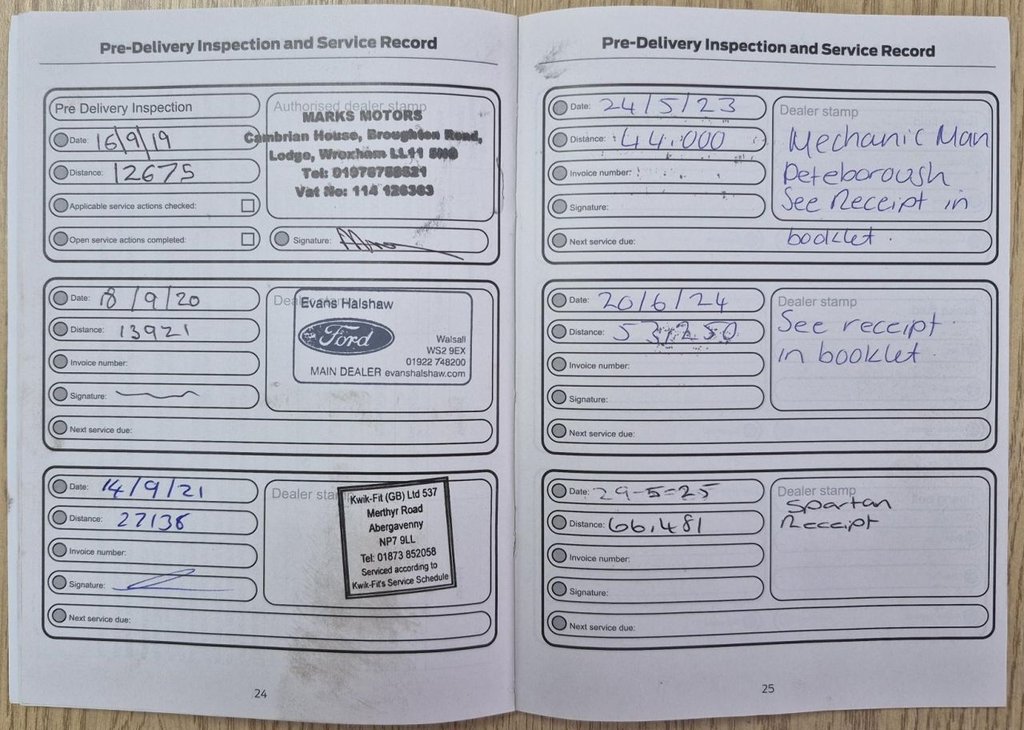 Pre-Delivery Inspection and Service Record
Pre Delivery Inspection
Date: 16/9/19
Distance: 12675
Applicable service actions checked:
Open service actions completed:
Authorised dealer stamp
MARKS MOTORS
Cambrian House, Broughton Road,
Lodge, Wrexham LL11
Tel:
Vat No: 114
Signature:
Date: 18/9/20
Distance: 13921
Invoice number:
Signature:
Next service due:
Evans Halshaw
Ford
Walsall
WS2 9EX
01922 748200
MAIN DEALER evanshalshaw.com
Date: 14/9/21
Distance: 27136
Invoice number:
Signature:
Next service due:
Dealer
Kwik-Fit (GB) Ltd 537
Merthyr Road
Abergavenny
NP7 9LL
Tel: 01873 852058
Serviced according to
Kwik-Fit's Service Schedule
24
Pre-Delivery Inspection and Service Record
Date: 24/5/23
Distance: 44.000
Invoice number:
Signature:
Next service due:
Dealer stamp
Mechanic Man
Peteborough
See Receipt in
booklet.
Date: 20/6/24
Distance: 53,250
Invoice number:
Signature:
Next service due:
Dealer stamp
See receipt
in booklet
Date: 29-5-25
Distance: 66,481
Invoice number:
Signature:
Next service due:
Dealer stamp
Spartan
Receipt
25